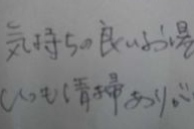 気持ちの良いお湯
いつも清掃ありが